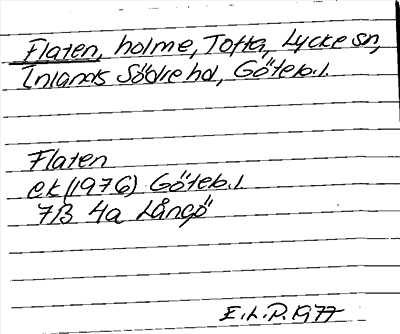 Flaten, holme, Tofta, Lycke sn,
Inlands Södre hd, Göteb.l.
Flaten
ek (1976) Göteb.l.
7B 4a Långö
E.L.P. 1977